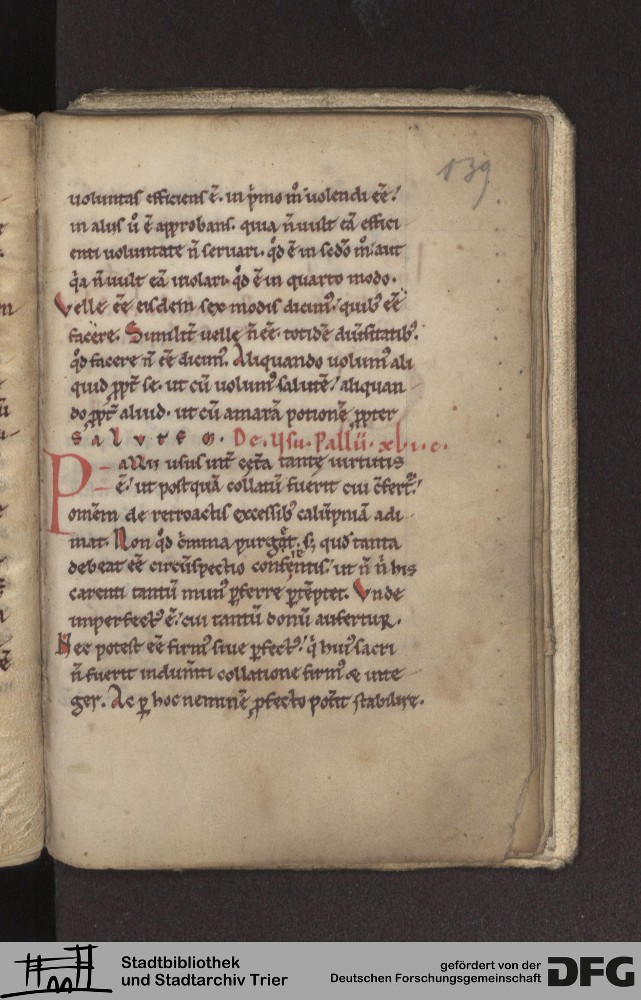 139
uoluntas efficiens ē. in p̄mo m̊ uolendi eē!
in aliis ů ē approbans. quia n̄ uult eā effici
enti uoluntate n̄ seruari. qd̄ ē in scdō m̊. aut
q̇a n̄ uult eā uiolari. qd̄ ē in quarto modo.
Velle eē eisdem sex modis dicim⁹! quib⁹ eē
facere. Similit̄ uelle n̄ eē. totidē diūsitatib⁹.
qd̄ facere n̄ eē dicim⁹. Aliquando uolum⁹ ali
quid ꝓpt̄ se. ut cū uolum⁹ salutē! aliquan
do ꝓpt̄ aliud. ut cū amarā potionē ꝓpter
salutem. De usu Pallii. xlvi. c.
Pallii usus uir̄ cęt̄a tantę uirtutis
ē! ut postquā collatū fuerit cui ̄ofert⁹!
omēm de retroactis excessib⁹ calūpniā adi
mat. Non qd̄ c̄mina purgat. s; quod tanta
debeat eē circūspectio consentientis! ut n̄ n̊ his
carenti tantū mun⁹ ꝓferre p̄tēptet. Vnde
imperfect⁹ ē! cui tantū donū aufertur.
Nec potest eē firm⁹ siue ꝑfect⁹! q̇ hui⁹ sacri
n̄ fuerit indum̄ti collatione firm⁹ & inte
ger. Ac ꝑ hoc neminē ꝓfecto pot̄it stabilire.
Stadtbibliothek
und Stadtarchiv Trier
gefördert von der
Deutschen Forschungsgemeinschaft
DFG